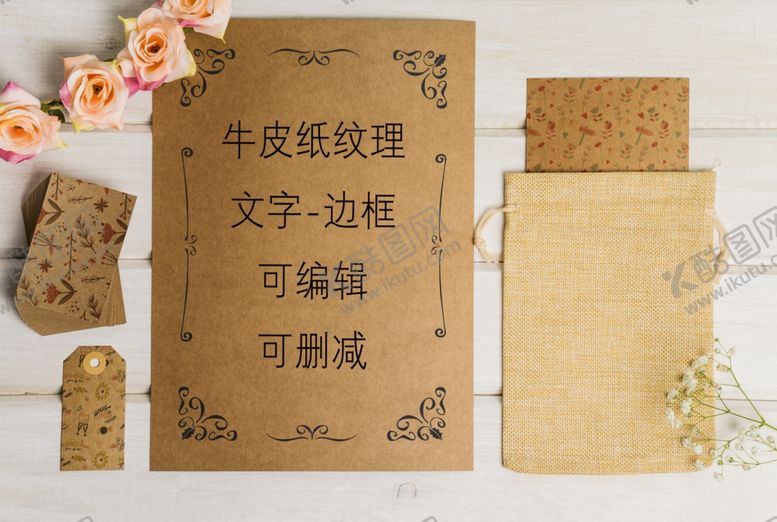 牛皮纸纹理
文字-边框
可编辑
可删减
酷图网
www.ikutu.com
酷图网
www.ikutu.com